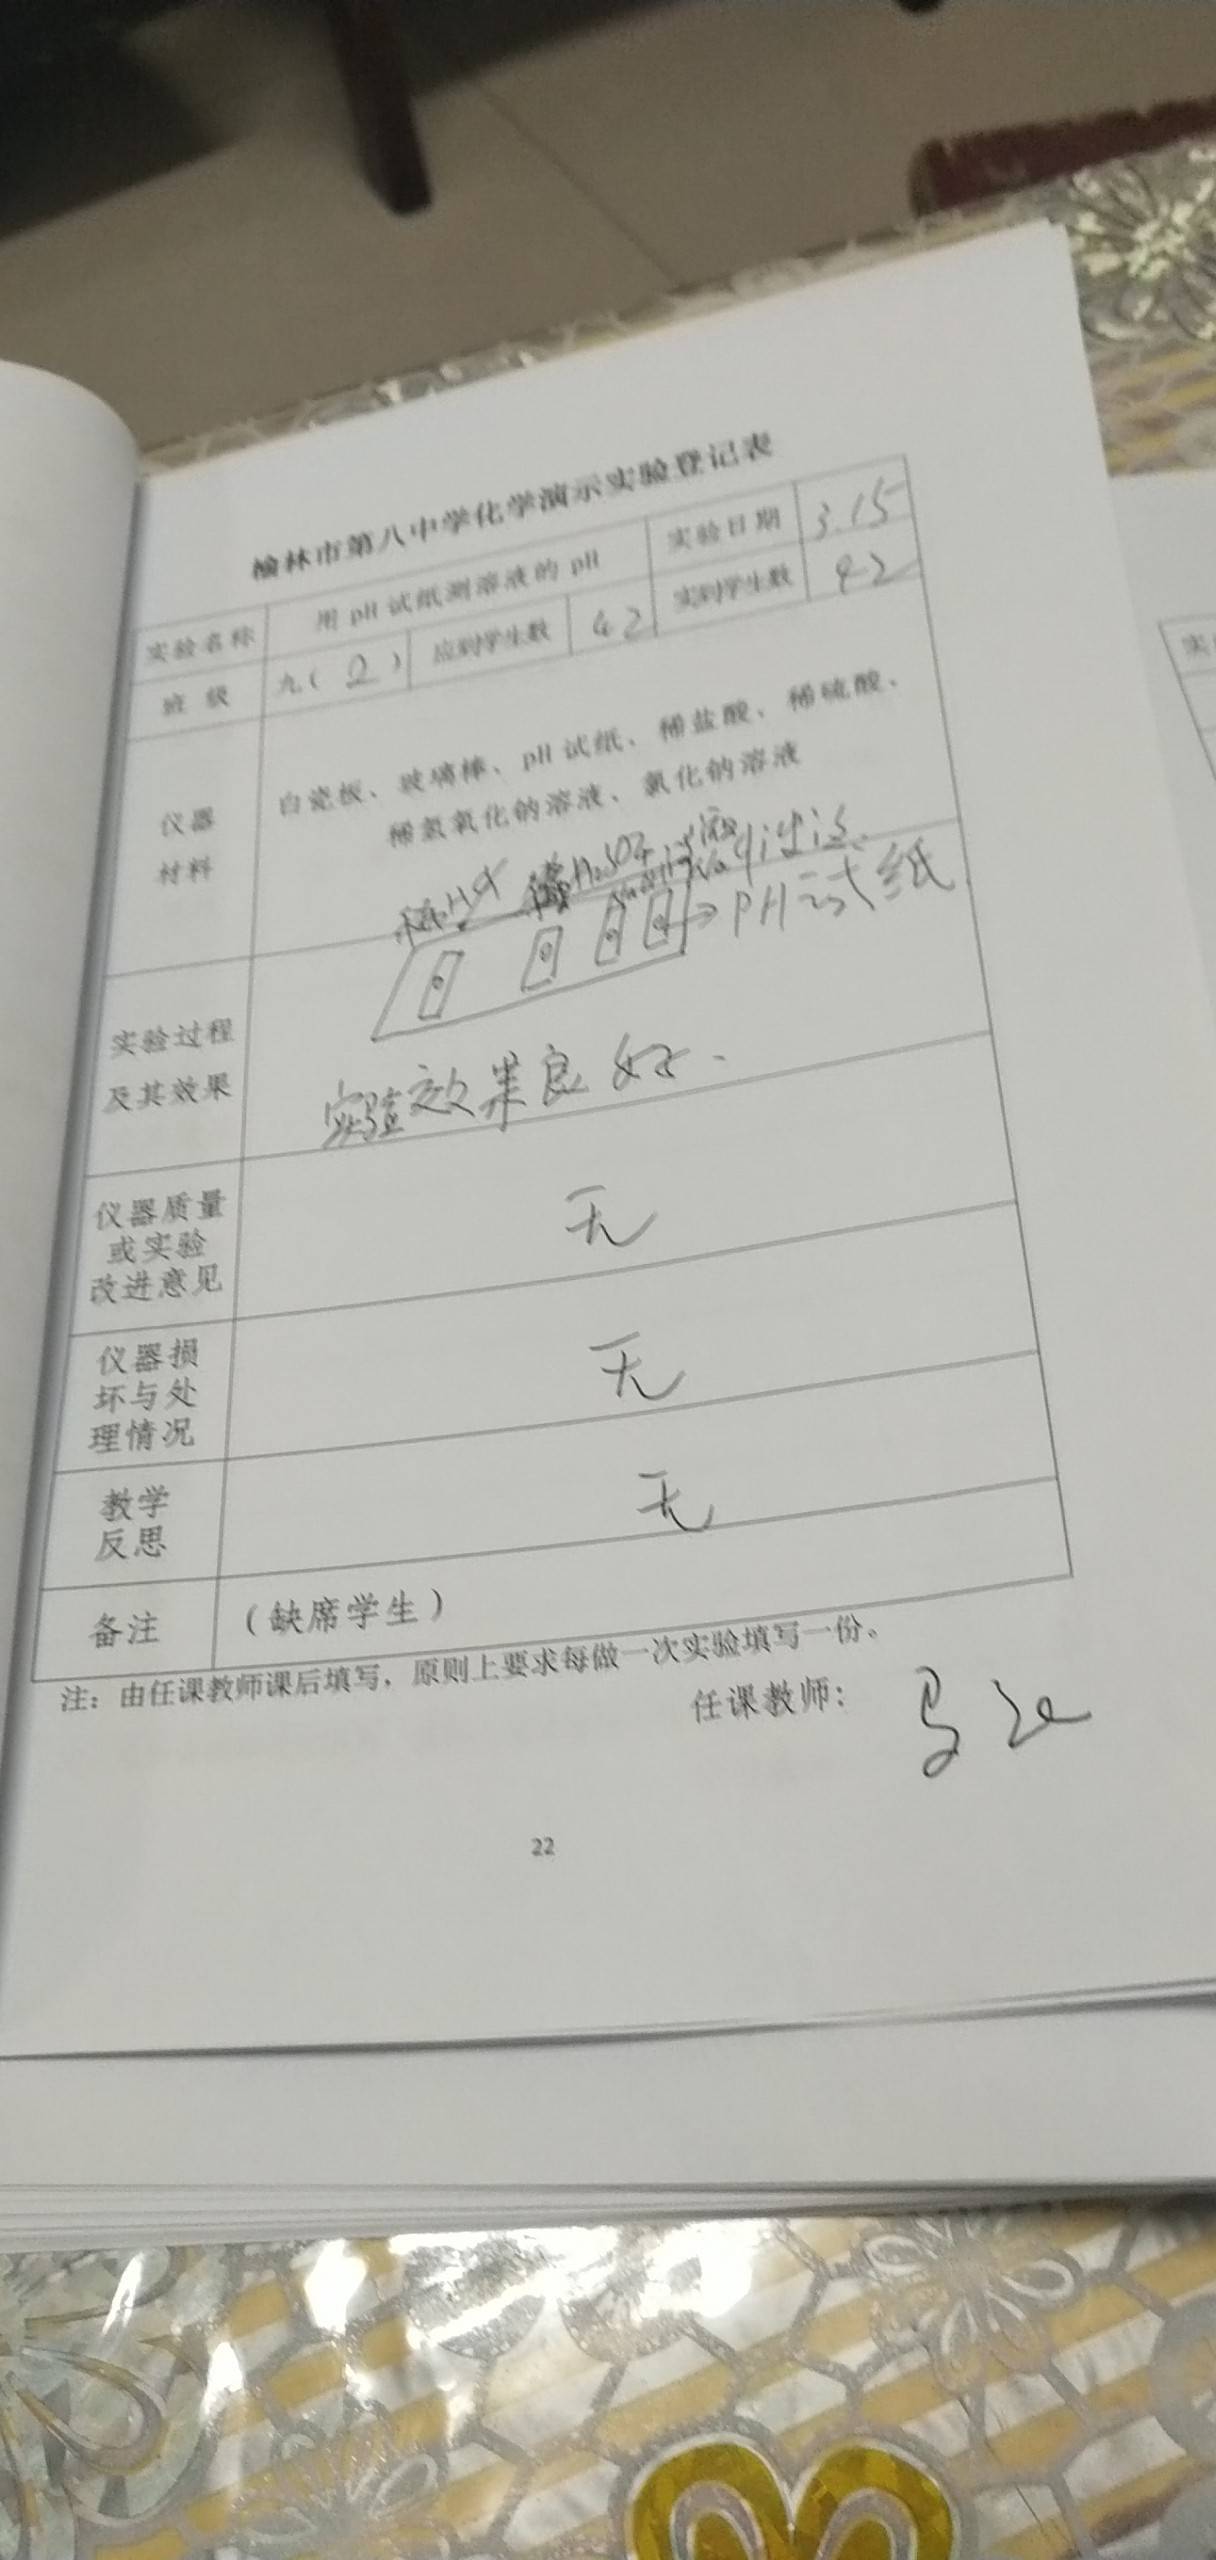 榆林市第八中学化学演示实验登记表
实验名称 用 pH 试纸测溶液的 pH 实验日期 3.15
班 级 九(2) 应到学生数 42 实到学生数 42
仪器
材料
白瓷板、玻璃棒、pH 试纸、稀盐酸、稀硫酸、
稀氢氧化钠溶液、氯化钠溶液
稀HCl 稀H2SO4
PH试纸
实验过程
及其效果
实验效果良好.
仪器质量
或实验
改进意见
无
仪器损
坏与处
理情况
无
教学
反思
无
备注 (缺席学生)
注：由任课教师课后填写，原则上要求每做一次实验填写一份。
任课教师：
22